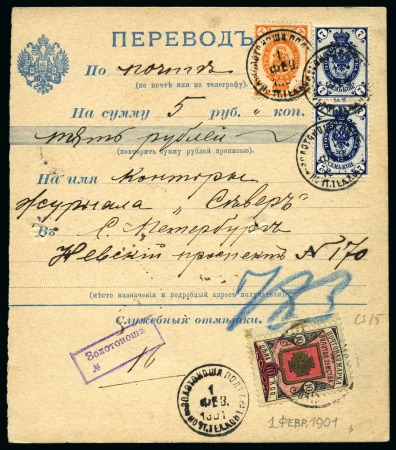 ПЕРЕВОДЪ
По почтѣ
(по почтѣ или по телеграфу).
На сумму 5 руб. „ коп.
пять рублей
(повторить сумму рублей прописью).
На имя Конторы
журнала „Сѣверъ"
Въ С. Петербургъ
Невскій проспектъ N 170
(мѣсто назначенія и подробный адресъ получателя)
783
Служебныя отмѣтки.
Золотоноша
№
16
ЗОЛОТОНОША ПОЛТ.
1
ФЕВ.
1901
ПОЧТ.ТЕЛ.КОН.
10
10
КОП.
1 ФЕВР. 1901